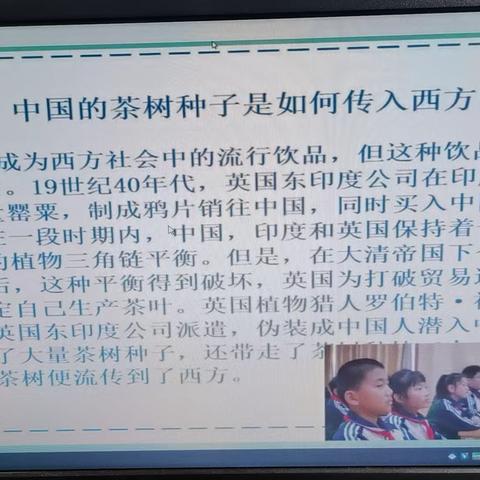 中国的茶树种子是如何传入西方
成为西方社会中的流行饮品，但这种饮品
。19世纪40年代，英国东印度公司在印度
罂粟，制成鸦片销往中国，同时买入中国
一段时期内，中国，印度和英国保持着
的植物三角链平衡。但是，在大清帝国下
后，这种平衡得到破坏，英国为打破贸易
定自己生产茶叶。英国植物猎人罗伯特·
英国东印度公司派遣，伪装成中国人潜入中
了大量茶树种子，还带走了茶
茶树便流传到了西方。